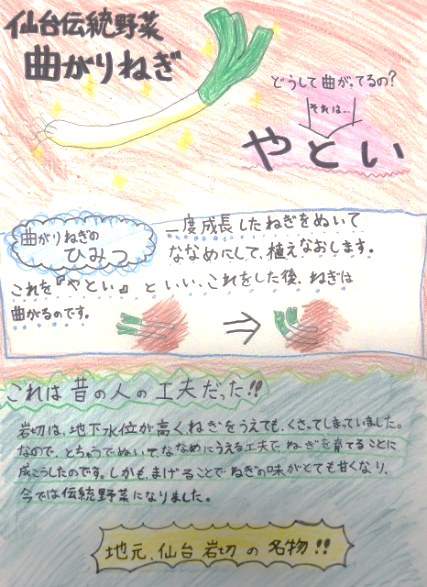 仙台伝統野菜
曲がりねぎ
どうして曲がってるの?
それは...
やとい
曲がりねぎの
ひみつ
一度成長したねぎをぬいて
ななめにして、植えなおします。
これを『やとい』といい、これをした後、ねぎは
曲がるのです。
これは昔の人の工夫だった!!
岩切は、地下水位が高くねぎをうえても、くさってしまっていました。
なので、とちゅうでぬいて、ななめにうえる工夫で、ねぎを育てることに
成こうしたのです。しかも、まげることで、ねぎの味がとても甘くなり、
今では伝統野菜になりました。
地元、仙台岩切の名物!!